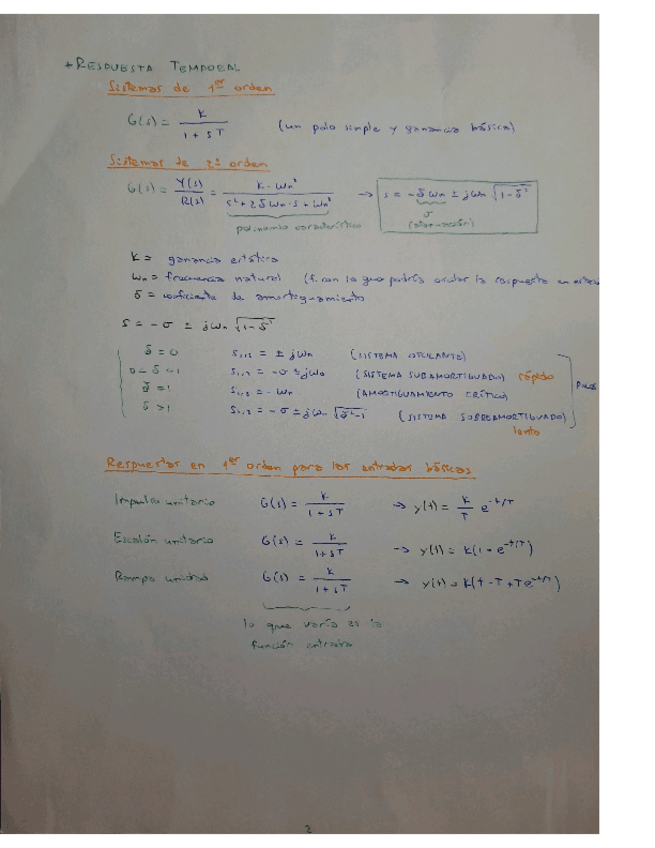 + RESPUESTA TEMPORAL
Sistemas de 1er orden
G(s) = K / (1 + sT) (un polo simple y ganancia básica)
Sistemas de 2º orden
G(s) = Y(s)/R(s) = K · ωn² / (s² + 2δωn·s + ωn²) → s = -δωn ± jωn √(1-δ²)
polinomio característico σ (atenuación)
K = ganancia estática
ωn = frecuencia natural (f. con la que podría oscilar la respuesta en
δ = coeficiente de amortiguamiento
s = -σ ± jωn √(1-δ²)
δ = 0 s1,2 = ± jωn (SISTEMA OSCILANTE)
0 < δ < 1 s1,2 = -σ ± jωd (SISTEMA SUBAMORTIGUADO) rápido
δ = 1 s1,2 = -ωn (AMORTIGUAMIENTO CRÍTICO)
δ > 1 s1,2 = -σ ± jωn √(δ²-1) (SISTEMA SOBREAMORTIGUADO)
lento
Respuestas en 1er orden para las entradas básicas
Impulso unitario G(s) = K / (1 + sT) → y(t) = K/T e^(-t/T)
Escalón unitario G(s) = K / (1+sT) → y(t) = K(1 - e^(-t/T))
Rampa unidad G(s) = K / (1+sT) → y(t) = K(t - T + Te^(-t/T))
lo que varía es la
función entrada
2